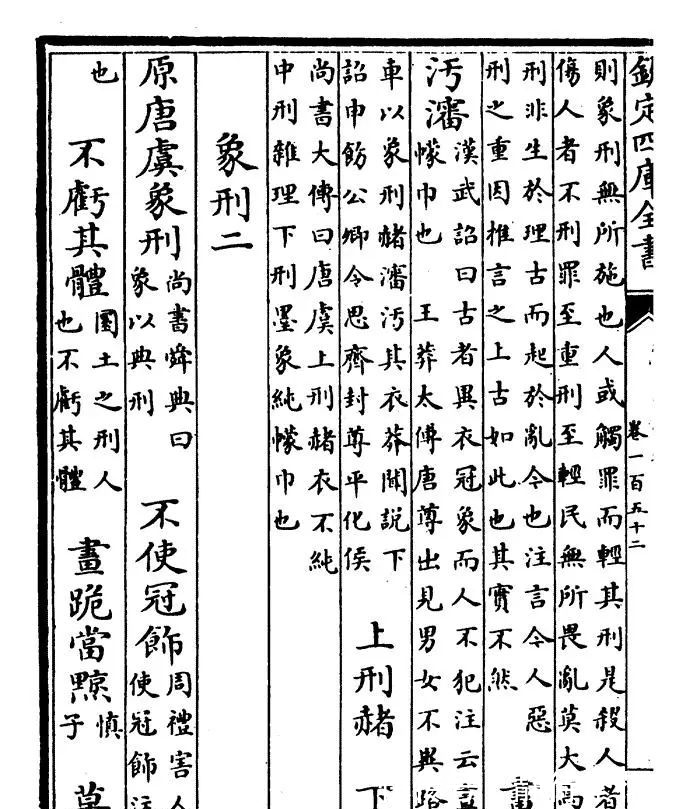 欽定四庫全書 卷一百五十二
則象刑無所施也人或觸罪而輕其刑是殺人者
傷人者不刑罪至重刑至輕民無所畏亂莫大焉
刑非生於理古而起於亂今也注言今人惡
刑之重因推言之上古如此也其實不然
畫
汚瀋
漢武詔曰古者異衣冠象而人不犯注云畫
幪巾也 王莽太傅唐尊出見男女不異路
車以象刑赭瀋汚其衣莽聞說下
詔申飭公卿令思齊封尊平化侯
上刑赭 下
尚書大傳曰唐虞上刑赭衣不純
中刑雜理下刑墨象純幪巾也
象刑二
原唐虞象刑
尚書舜典曰
象以典刑
不使冠飾
周禮害人
使冠飾注
也
不虧其體
圜土之刑人
也不虧其體
畫跪當黥
慎
子